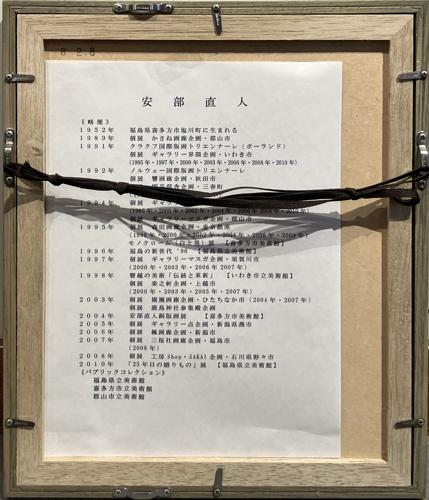 8.2.8
安部直人
《略歴》
1952年 福島県喜多方市塩川町に生まれる
1989年 個展 かさね画廊企画・郡山市
1991年 クラクフ国際版画トリエンナーレ(ポーランド)
個展 ギャラリー界隈企画・いわき市
(1995年・1997年・2000年・2003年・2006年・2008年・2010年)
1992年 ノルウェー国際版画トリエンナーレ
個展 企画・秋田市
企画・三春町
1994年 個展 ギャラリー
個展 ギャラリーマスガ企画・郡山市
1995年 個展 画廊企画・東京銀座
モノクローム 展 【喜多方市美術館】
1996年 福島の新世代'96 【福島県立美術館】
1997年 個展 ギャラリーマスガ企画・須賀川市
(2000年・2003年・2006年・2007年)
1998年 磐越の美術「伝統と革新」 【いわき市立美術館】
個展 楽之軒企画・上越市
(2000年・2003年・2005年・2007年)
2003年 個展 画廊企画・ひたちなか市(2004年・2007年)
個展 鹿島神社参集殿企画
2004年 安部直人銅版画展 【喜多方市美術館】
2005年 個展 ギャラリー一点企画・新潟県燕市
2006年 個展 楓画廊企画・新潟市
2007年 個展 三桜社画廊企画・福島市
(2008年)
2008年 個展 工房Shop・SAKAI企画・石川県野々市
2010年 「25年目の贈りもの」展 【福島県立美術館】
《パブリックコレクション》
福島県立美術館
喜多方市立美術館
郡山市立美術館